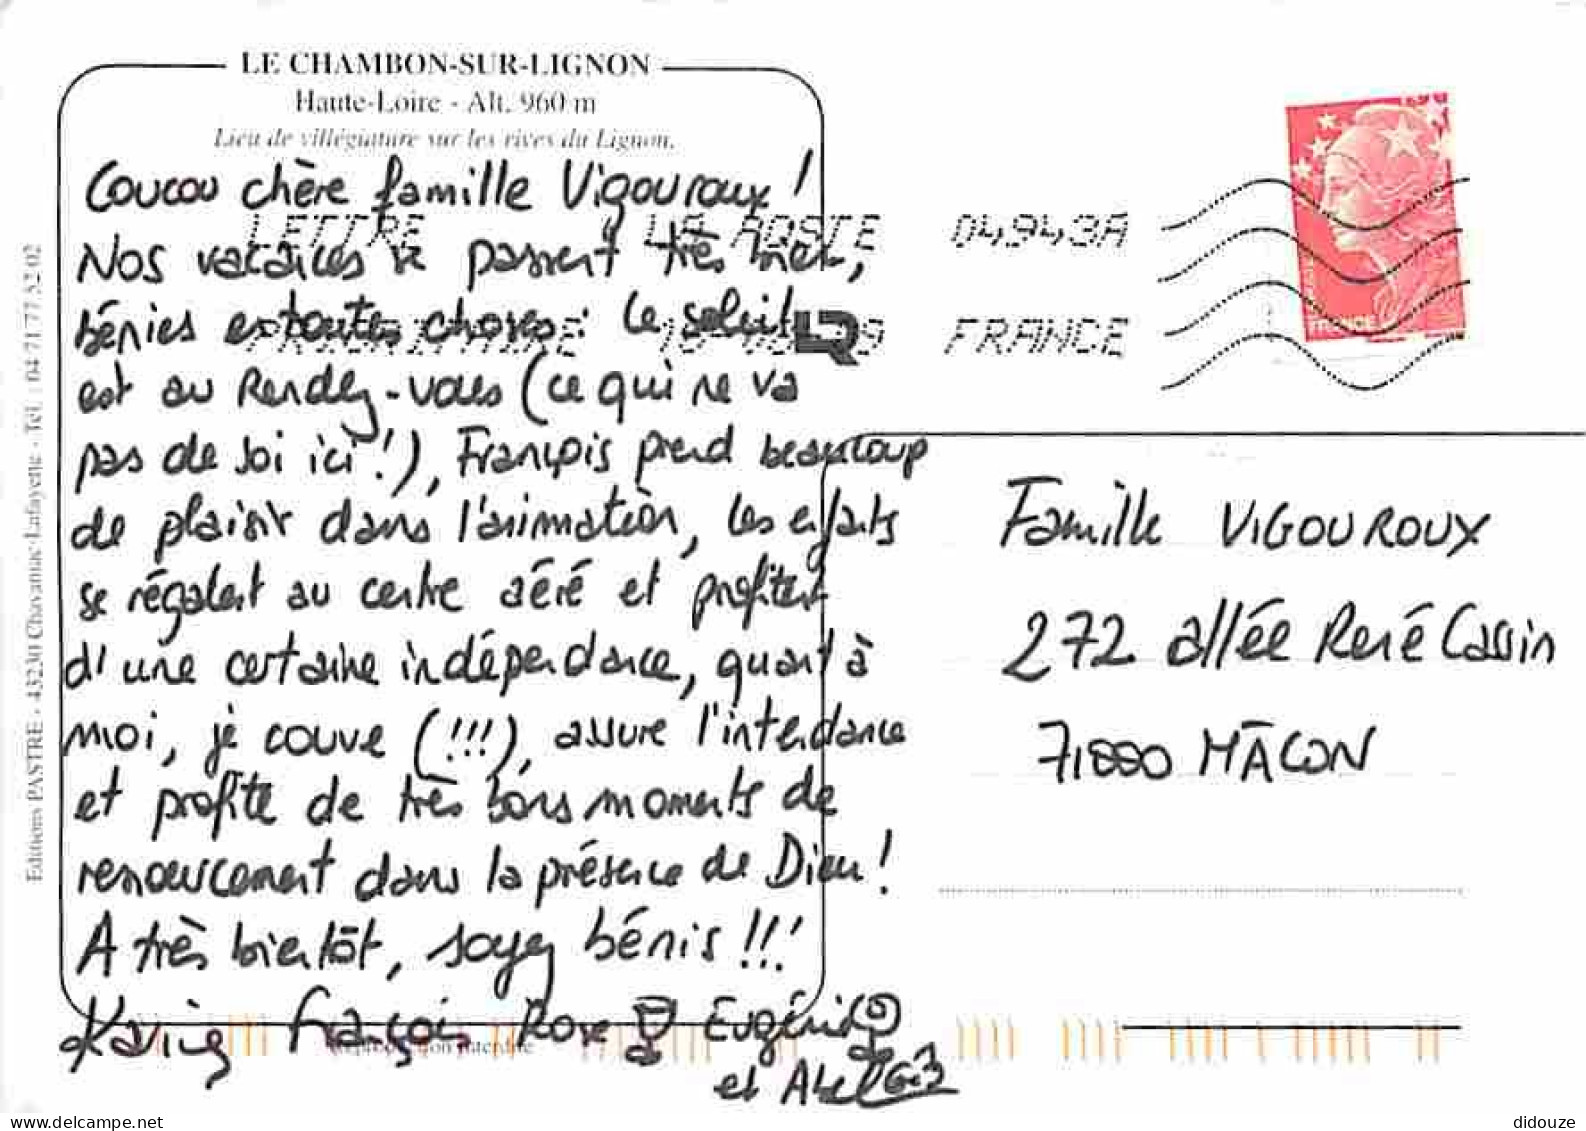 LE CHAMBON-SUR-LIGNON
Haute-Loire - Alt. 960 m
Lieu de villégiature sur les rives du Lignon.
Coucou chère famille Vigouroux !
Nos vacances se passent très bien,
bénies en toutes choses : le soleil
est au Rendez-vous (ce qui ne va
pas de soi ici !), François prend beaucoup
de plaisir dans l'animation, les enfants
se régalent au centre aéré et profitent
d'une certaine indépendance, quant à
moi, je couve (!!!), assure l'intendance
et profite de très bons moments de
ressourcement dans la présence de Dieu !
A très bientôt, soyez bénis !!!
Karine François Rose Eugénie
et Abel
Reproduction interdite
Editions PASTRE - 43230 Chavaniac-Lafayette - Tél. : 04 71 77 52 02
LETTRE LA POSTE 04943A
PRIORITAIRE FRANCE
FRANCE
Famille VIGOUROUX
272 allée René Cassin
71000 MÂCON
didouze